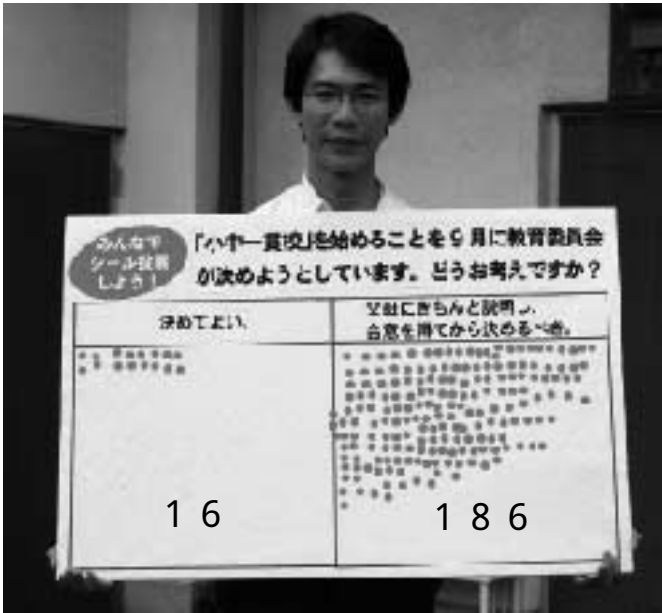 みんなで
シール投票
しよう!
「小中一貫校」を始めることを9月に教育委員会
が決めようとしています。どうお考えですか?
決めてよい。
父母にきちんと説明し、
合意を得てから決めるべき。
16
186